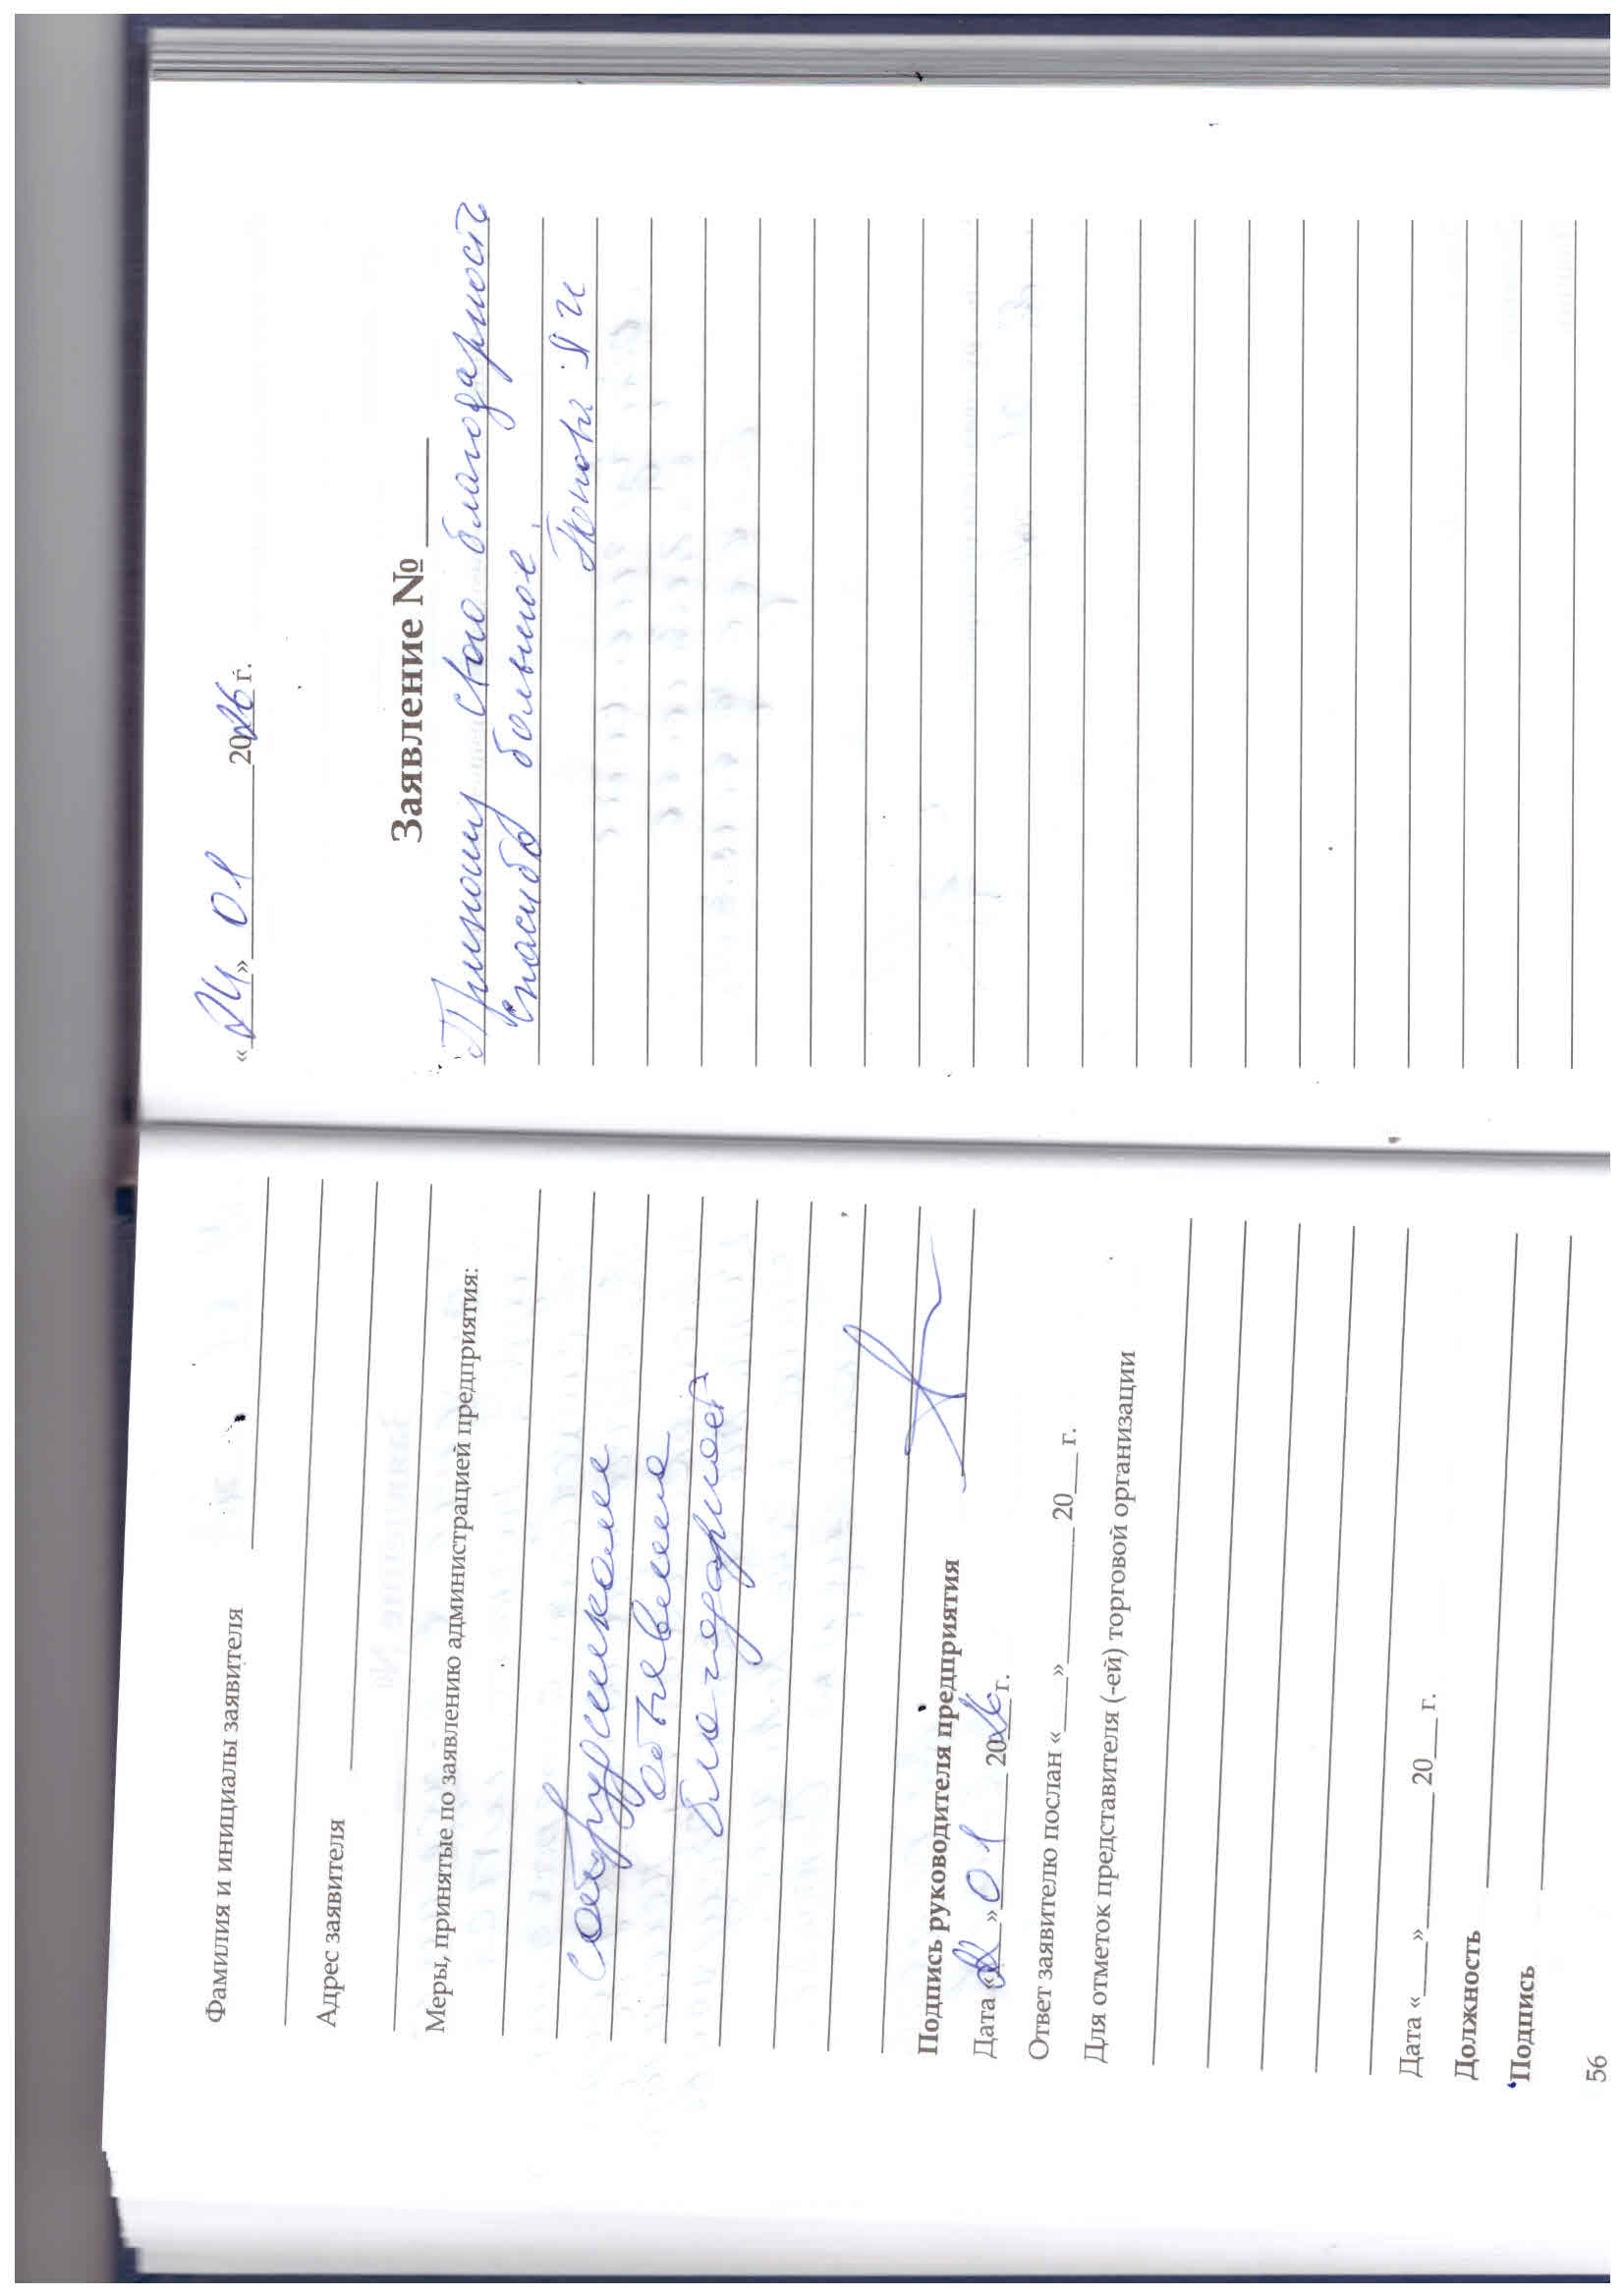 Фамилия и инициалы заявителя
Адрес заявителя
Меры, принятые по заявлению администрацией предприятия:
сотрудникам
объявлена
благодарность
Подпись руководителя предприятия
Дата « » 01 2026 г.
Ответ заявителю послан «___» ________ 20___ г.
Для отметок представителя (-ей) торговой организации
Дата «___» ________ 20___ г.
Должность
Подпись
56
«24» 01 2026 г.
Заявление № ____
Приношу свою благодарность
Спасибо большое.